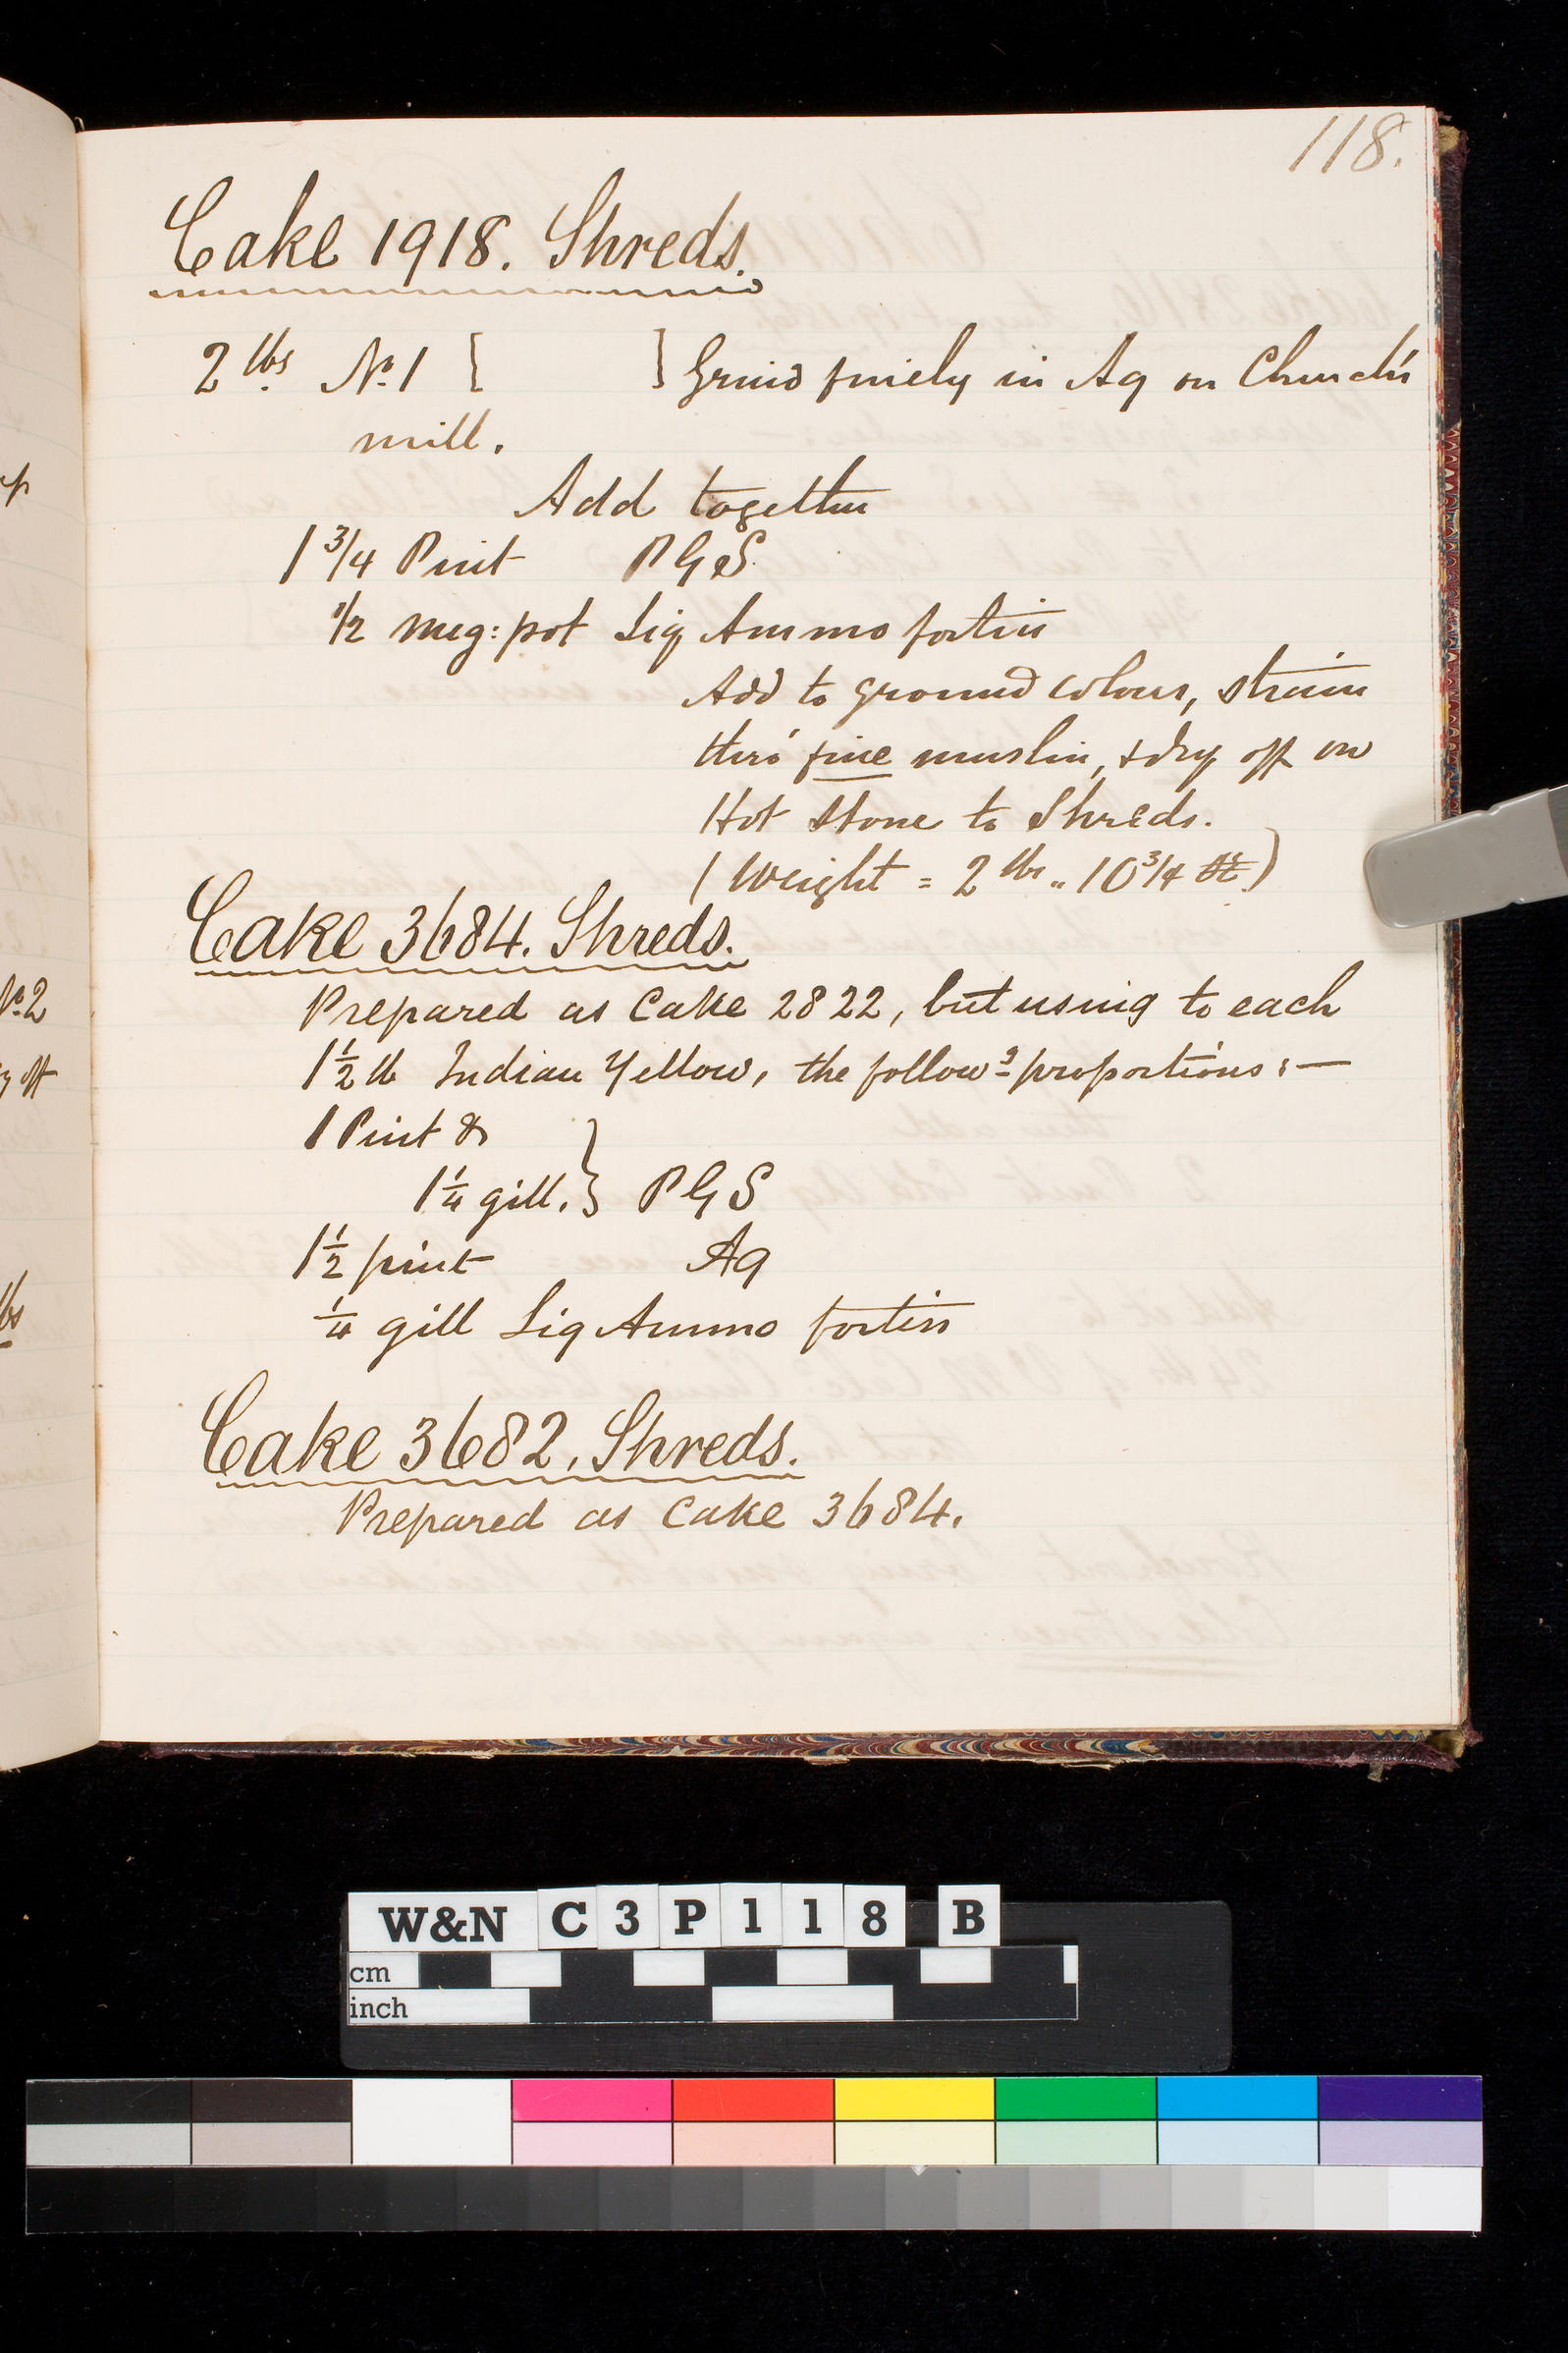 118.
Cake 1918. Shreds.
2 lbs No 1 [ ] Grind finely in Aq on Church's
mill.
Add together
1 3/4 Pint P G S.
1/2 meg: pot Liq Ammo fortiss
Add to ground colour, strain
thro' fine muslin, & dry off on
Hot Stone to Shreds.
(Weight = 2 lbs " 10 3/4
Cake 3684. Shreds.
Prepared as Cake 2822, but using to each
1 1/2 lb Indian Yellow, the followg proportions :—
1 Pint &
1 1/4 gill. } P G S
1 1/2 pint Aq
1/4 gill Liq Ammo fortiss
Cake 3682. Shreds.
Prepared as Cake 3684.
No 2
off
lbs
W&N C 3 P 1 1 8 B
cm
inch